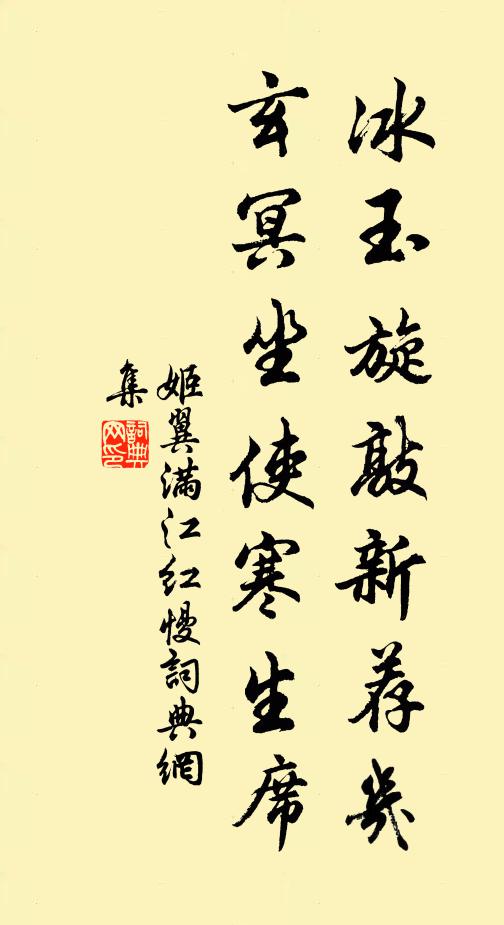 冰玉旋敲新荐几
玄冥坐使寒生席
姬翼满江红慢詞典網
集
詞典网印